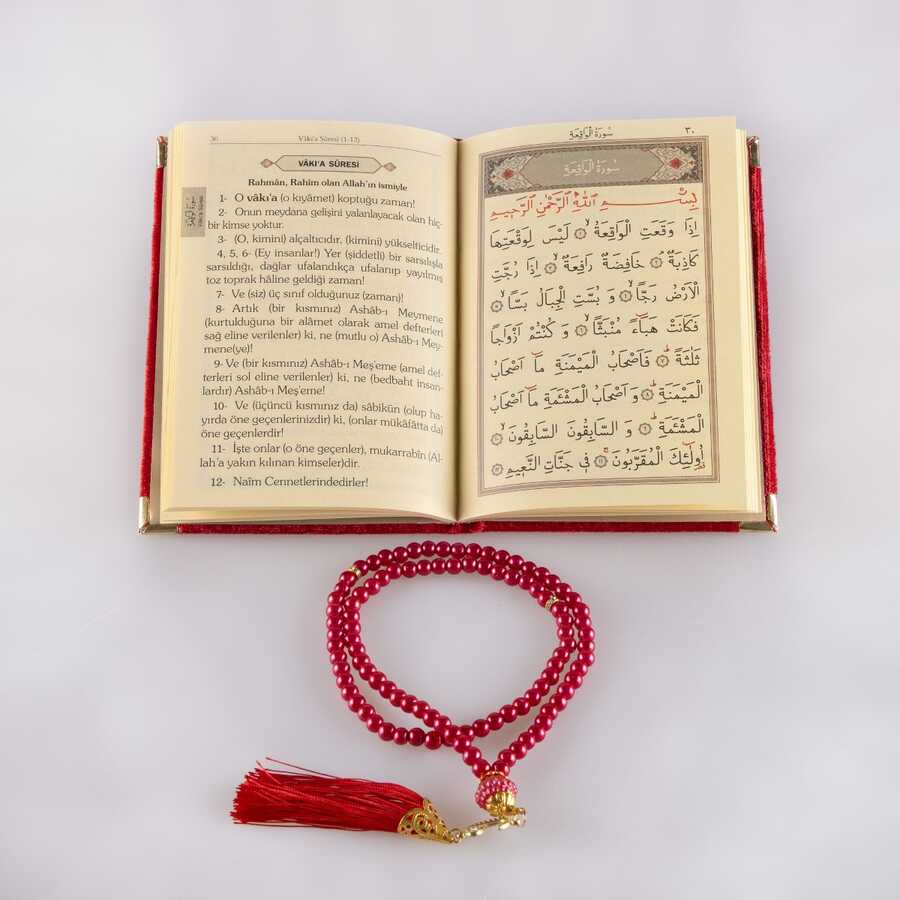 36 Vâkı'a Sûresi (1-12)
VÂKI'A SÛRESİ
Rahmân, Rahîm olan Allah'ın ismiyle
1- O vâkı'a (o kıyâmet) koptuğu zaman!
2- Onun meydana gelişini yalanlayacak olan hiç-
bir kimse yoktur.
3- (O, kimini) alçaltıcıdır, (kimini) yükselticidir.
4, 5, 6- (Ey insanlar!) Yer (şiddetli) bir sarsılışla
sarsıldığı, dağlar ufalandıkça ufalanıp yayılmış
toz toprak hâline geldiği zaman!
7- Ve (siz) üç sınıf olduğunuz (zaman)!
8- Artık (bir kısmınız) Ashâb-ı Meymene
(kurtulduğuna bir alâmet olarak amel defterleri
sağ eline verilenler) ki, ne (mutlu o) Ashâb-ı Mey-
mene(ye)!
9- Ve (bir kısmınız) Ashâb-ı Meş'eme (amel def-
terleri sol eline verilenler) ki, ne (bedbaht insan-
lardır) Ashâb-ı Meş'eme!
10- Ve (üçüncü kısmınız da) sâbikûn (olup ha-
yırda öne geçenlerinizdir) ki, (onlar mükâfâtta da)
öne geçenlerdir!
11- İşte onlar (o öne geçenler), mukarrabîn (Al-
lah'a yakın kılınan kimseler)dir.
12- Naîm Cennetlerindedirler!
سُورَةُ الْوَاقِعَةِ ٣٠
سُورَةُ الْوَاقِعَةِ
بِسْمِ اللّٰهِ الرَّحْمٰنِ الرَّحِيمِ
اِذَا وَقَعَتِ الْوَاقِعَةُ ۙ ١ لَيْسَ لِوَقْعَتِهَا
كَاذِبَةٌ ۢ ٢ خَافِضَةٌ رَافِعَةٌ ۙ ٣ اِذَا رُجَّتِ
الْاَرْضُ رَجًّا ۙ ٤ وَ بُسَّتِ الْجِبَالُ بَسًّا ۙ ٥
فَكَانَتْ هَبَٓاءً مُنْبَثًّا ۙ ٦ وَ كُنْتُمْ اَزْوَاجًا
ثَلٰثَةً ۜ ٧ فَاَصْحَابُ الْمَيْمَنَةِ مَٓا اَصْحَابُ
الْمَيْمَنَةِ ۜ ٨ وَ اَصْحَابُ الْمَشْـَٔمَةِ مَٓا اَصْحَابُ
الْمَشْـَٔمَةِ ۜ ٩ وَ السَّابِقُونَ السَّابِقُونَ ۙ ١٠
اُو۬لٰٓئِكَ الْمُقَرَّبُونَ ۚ ١١ فٖي جَنَّاتِ النَّعٖيمِ ١٢